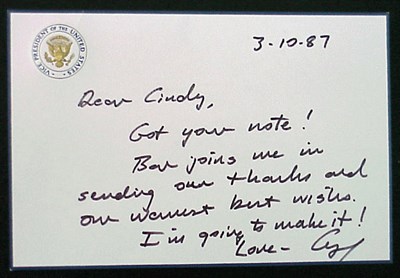 VICE PRESIDENT OF THE UNITED STATES
3-10-87
Dear Cindy,
Got your note!
Bar joins me in
sending our thanks and
our warmest best wishes.
I'm going to make it!
Love-